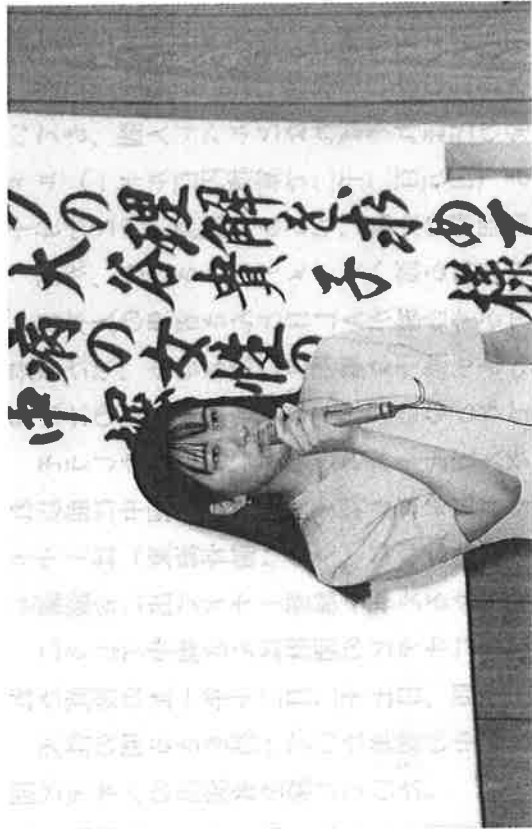 クの理解を求めて
大谷貴子様
病の女性の
中堀